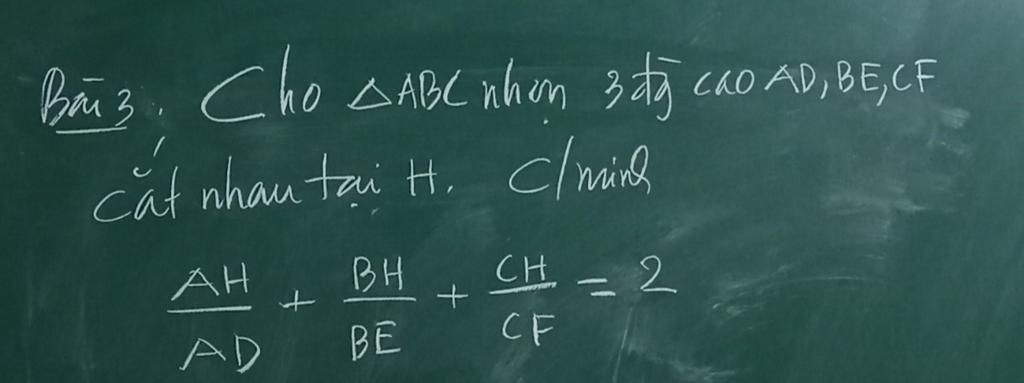 Bài 3. Cho △ABC nhọn 3 đg̀ cao AD, BE, CF
cắt nhau tại H. C/minh
AH/AD + BH/BE + CH/CF = 2